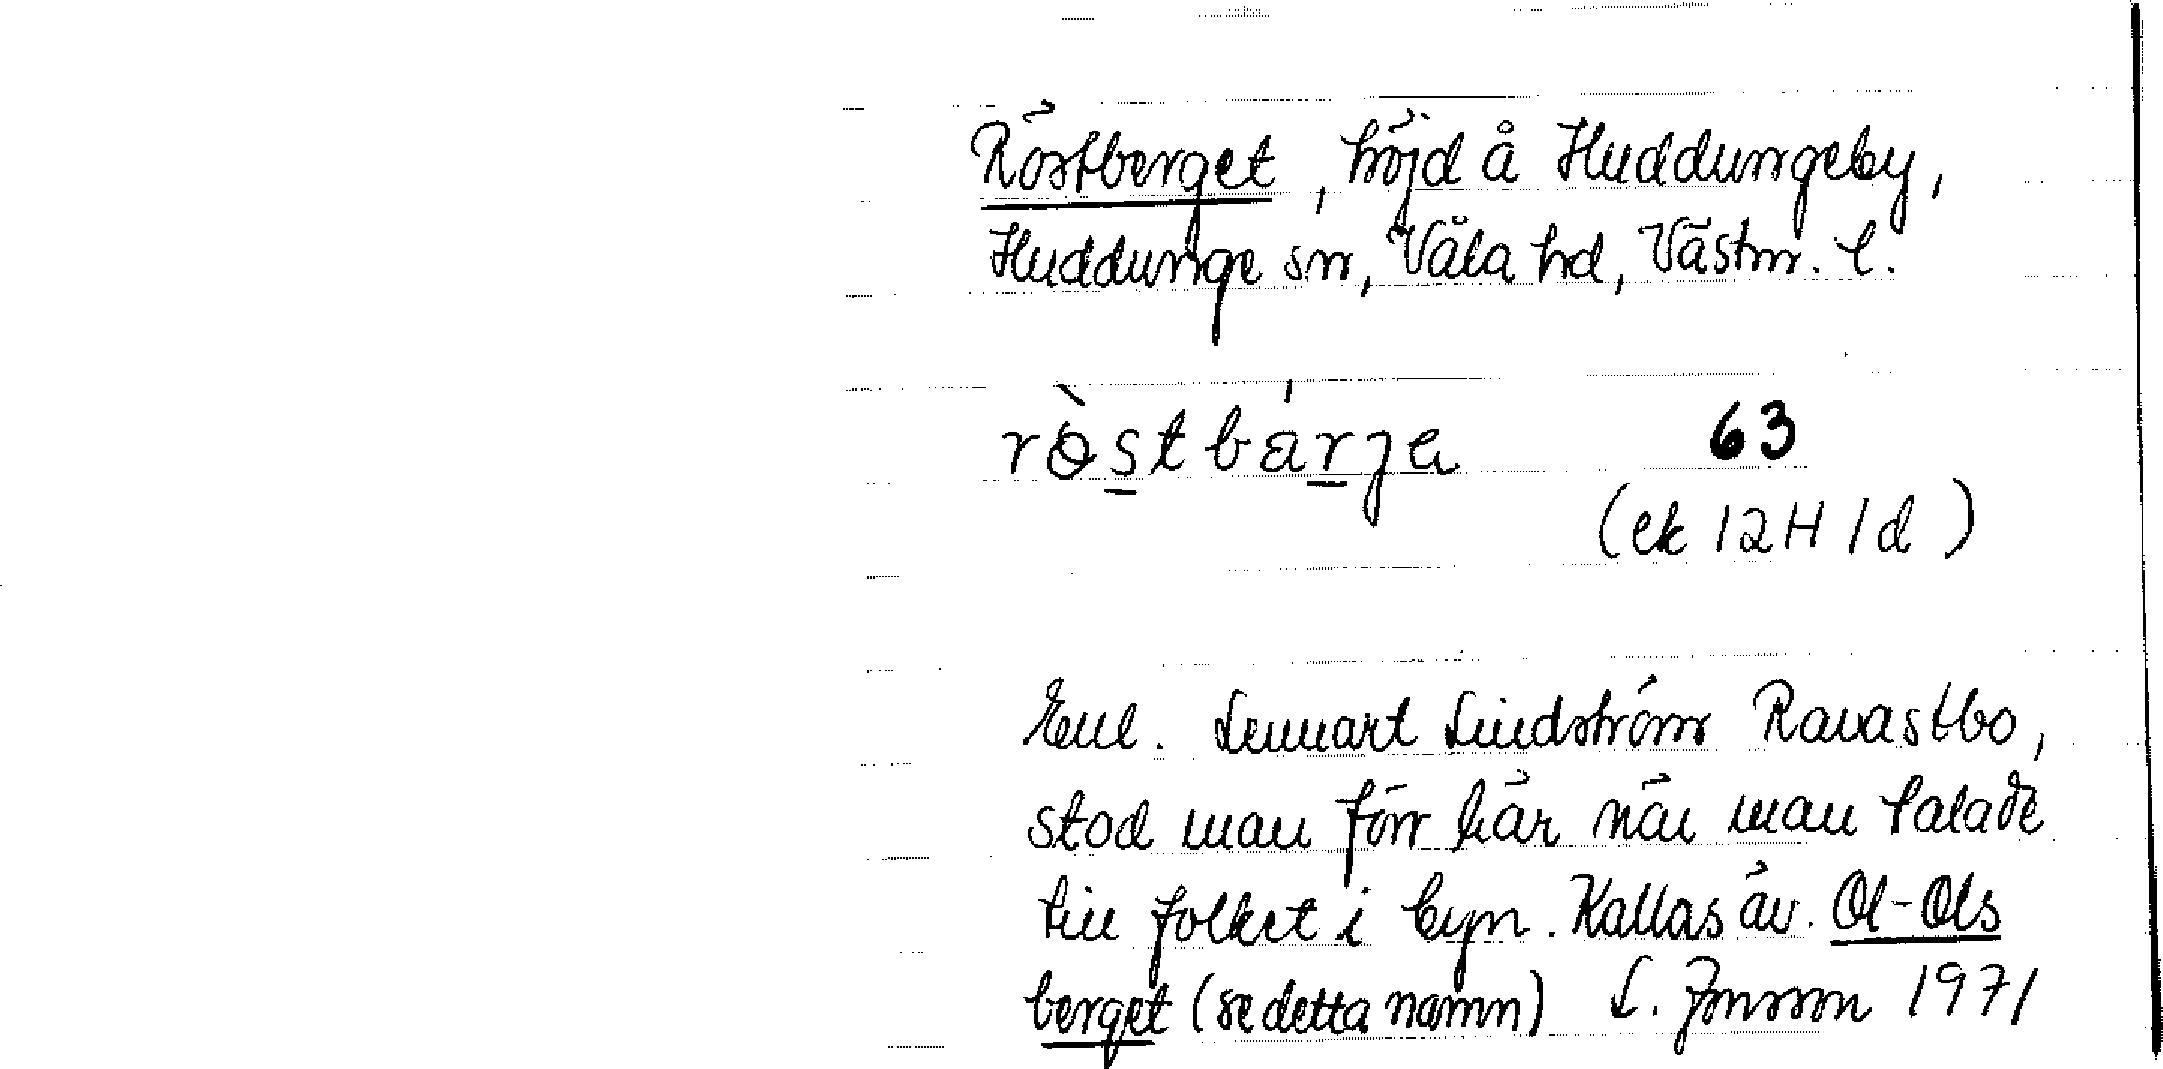 Röstberget, höjd å Huddungeby,
Huddunge sn, Våla hd, Västm. l.
rò̀stbárja
63
(ek 12H 1d)
Enl. Lennart Lindström Ravastbo,
stod man förr här när man talade
till folket i byn. Kallas äv. Ol-Ols
berget (se detta namn) L. Jonsson 1971